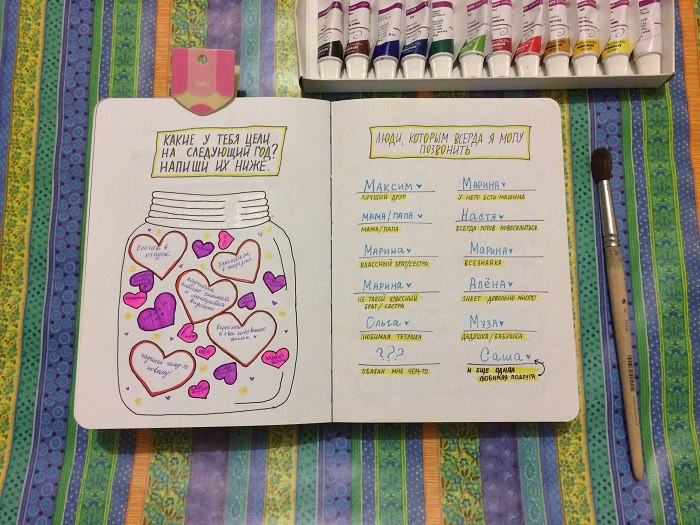 КАКИЕ У ТЕБЯ ЦЕЛИ
НА СЛЕДУЮЩИЙ ГОД?
НАПИШИ ИХ НИЖЕ.
Съездить в
отпуск
научиться
и
научиться чему-то
новому!
ЛЮДИ, КОТОРЫМ ВСЕГДА Я МОГУ
ПОЗВОНИТЬ
Максим
ЛУЧШИЙ ДРУГ
МАМА/ПАПА
МАМА/ПАПА
Марина
КЛАССНЫЙ БРАТ/СЕСТРА
Марина
НЕ ТАКОЙ КЛАССНЫЙ
БРАТ/СЕСТРА
Ольга
ЛЮБИМАЯ ТЕТУШКА
???
ОБЯЗАН МНЕ ЧЕМ-ТО
Марина
У НЕГО ЕСТЬ МАШИНА
Настя
ВСЕГДА ГОТОВ ПОВЕСЕЛИТЬСЯ
Марина
ВСЕЗНАЙКА
Алёна
ЗНАЕТ ДОВОЛЬНО МНОГО
Муза
ДЕДУШКА/БАБУШКА
Саша
И ЕЩЕ ОДНАА
ЛЮБИМАЯ ПОДРУГА